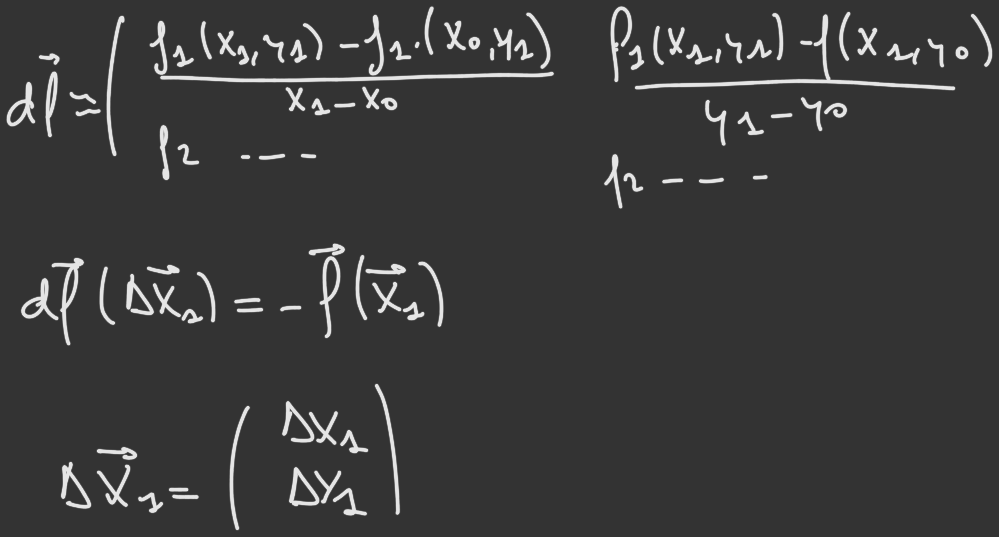 df⃗ ≃ ( (f₁(x₁,y₁) − f₁·(x₀,y₁))/(x₁ − x₀)   (f₁(x₁,y₁) − f(x₁,y₀))/(y₁ − y₀)
f₂ - - - -   f₂ - - -
df⃗ (Δx⃗₁) = − f⃗(x⃗₁)
Δx⃗₁ = ( Δx₁
ΔY₁ )